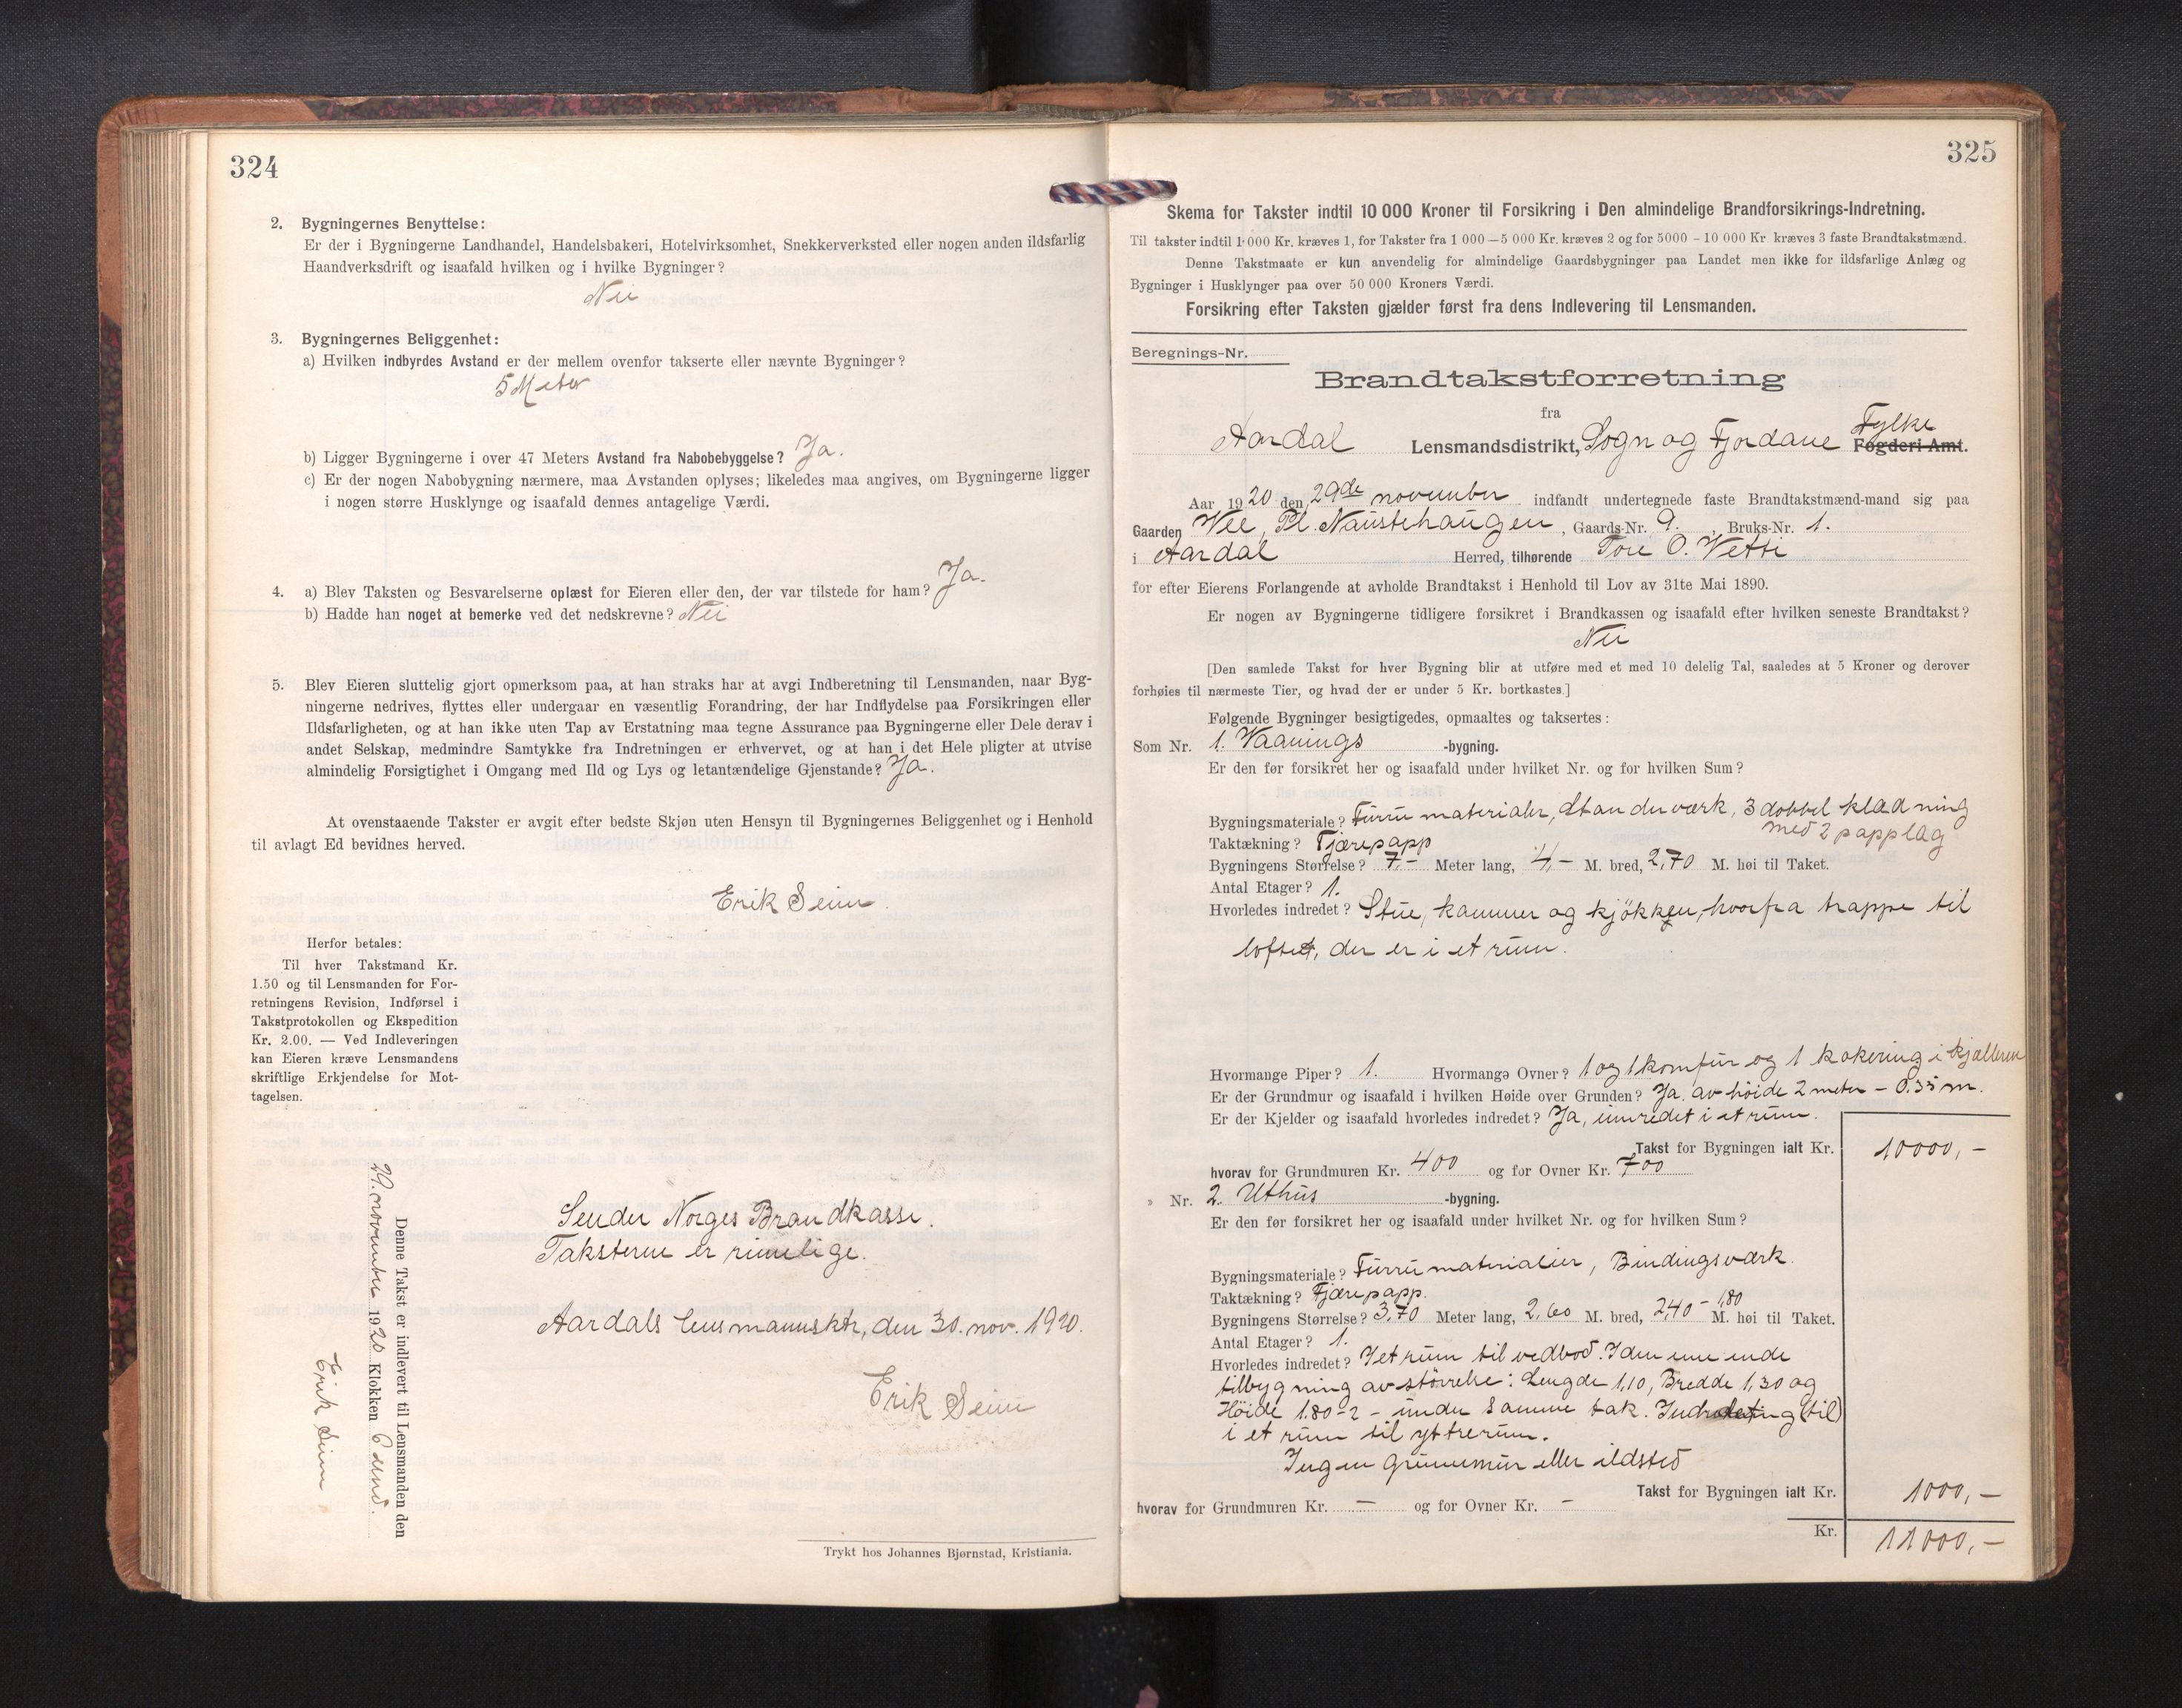 324
2. Bygningernes Benyttelse:
Er der i Bygningerne Landhandel, Handelsbakeri, Hotelvirksomhet, Snekkerverksted eller nogen anden ildsfarlig
Haandverksdrift og isaafald hvilken og i hvilke Bygninger?
Nei
3. Bygningernes Beliggenhet:
a) Hvilken indbyrdes Avstand er der mellem ovenfor takserte eller nævnte Bygninger?
5 Meter
b) Ligger Bygningerne i over 47 Meters Avstand fra Nabobebyggelse? Ja.
c) Er der nogen Nabobygning nærmere, maa Avstanden oplyses; likeledes maa angives, om Bygningerne ligger
i nogen større Husklynge og isaafald dennes antagelige Værdi.
4. a) Blev Taksten og Besvarelserne oplæst for Eieren eller den, der var tilstede for ham? Ja.
b) Hadde han noget at bemerke ved det nedskrevne? Nei
5. Blev Eieren sluttelig gjort opmerksom paa, at han straks har at avgi Indberetning til Lensmanden, naar Byg-
ningerne nedrives, flyttes eller undergaar en væsentlig Forandring, der har Indflydelse paa Forsikringen eller
Ildsfarligheten, og at han ikke uten Tap av Erstatning maa tegne Assurance paa Bygningerne eller Dele derav i
andet Selskap, medmindre Samtykke fra Indretningen er erhvervet, og at han i det Hele pligter at utvise
almindelig Forsigtighet i Omgang med Ild og Lys og letantændelige Gjenstande? Ja.
At ovenstaaende Takster er avgit efter bedste Skjøn uten Hensyn til Bygningernes Beliggenhet og i Henhold
til avlagt Ed bevidnes herved.
Erik Seim.
Herfor betales:
Til hver Takstmand Kr.
1.50 og til Lensmanden for For-
retningens Revision, Indførsel i
Takstprotokollen og Ekspedition
Kr. 2.00. — Ved Indleveringen
kan Eieren kræve Lensmandens
skriftlige Erkjendelse for Mot-
tagelsen.
Denne Takst er indlevert til Lensmanden den
29. november 1920 Klokken 6 eftmd.
Erik Seim
Sender Norges Brandkasse.
Taksterne er rimelige.
Aardals lensmannsktr, den 30. nov. 1920.
Erik Seim
Trykt hos Johannes Bjørnstad, Kristiania.
325
Skema for Takster indtil 10 000 Kroner til Forsikring i Den almindelige Brandforsikrings-Indretning.
Til takster indtil 1 000 Kr. kræves 1, for Takster fra 1 000 – 5 000 Kr. kræves 2 og for 5000 – 10 000 Kr kræves 3 faste Brandtakstmænd.
Denne Takstmaate er kun anvendelig for almindelige Gaardsbygninger paa Landet men ikke for ildsfarlige Anlæg og
Bygninger i Husklynger paa over 50 000 Kroners Værdi.
Forsikring efter Taksten gjælder først fra dens Indlevering til Lensmanden.
Beregnings-Nr.
Brandtakstforretning
fra
Aardal Lensmandsdistrikt, Sogn og Fjordane Fylke Fogderi Amt.
Aar 1920 den 29de november indfandt undertegnede faste Brandtakstmænd-mand sig paa
Gaarden Vee, Pl. Naustehaugen, Gaards-Nr. 9., Bruks-Nr. 1.
i Aardal Herred, tilhørende Tore O. Vetti
for efter Eierens Forlangende at avholde Brandtakst i Henhold til Lov av 31te Mai 1890.
Er nogen av Bygningerne tidligere forsikret i Brandkassen og isaafald efter hvilken seneste Brandtakst?
Nei
[Den samlede Takst for hver Bygning blir at utføre med et med 10 delelig Tal, saaledes at 5 Kroner og derover
forhøies til nærmeste Tier, og hvad der er under 5 Kr. bortkastes.]
Følgende Bygninger besigtigedes, opmaaltes og taksertes:
Som Nr. 1. Vaanings -bygning.
Er den før forsikret her og isaafald under hvilket Nr. og for hvilken Sum?
Bygningsmateriale? Furru materialer, Standerværk, 3 dobbel klædning
med 2 papplag
Taktækning? Tjærepapp
Bygningens Størrelse? 7,- Meter lang, 4,- M. bred, 2,70 M. høi til Taket.
Antal Etager? 1.
Hvorledes indredet? Stue, kammer og kjökken, hvorfra trappe til
loftet, der er i et rum.
Hvormange Piper? 1. Hvormange Ovner? 1 og 1 komfur og 1 kokering i kjælleren
Er der Grundmur og isaafald i hvilken Høide over Grunden? Ja. av höide 2 meter – 0.35 m.
Er der Kjelder og isaafald hvorledes indredet? Ja, innredet i et rum.
Takst for Bygningen ialt Kr. 10000,-
hvorav for Grundmuren Kr. 400 og for Ovner Kr. 700
» Nr. 2. Uthus -bygning.
Er den før forsikret her og isaafald under hvilket Nr. og for hvilken Sum?
Bygningsmateriale? Furrumaterialier, Bindingsværk.
Taktækning? Tjærepapp.
Bygningens Størrelse? 3,70 Meter lang, 2,60 M. bred, 2,40 – 1,80 M. høi til Taket.
Antal Etager? 1.
Hvorledes indredet? I et rum til vedbod. I den ene ende
tilbygning av störrelse: Lengde 1,10, Bredde 1,30 og
Höide 1.80-2 – under samme tak. Indredning (til)
i et rum til yttrerum.
Ingen grunnmur eller ildsted
Takst for Bygningen ialt Kr. 1000,-
hvorav for Grundmuren Kr. – og for Ovner Kr. –
Kr. 11000,-